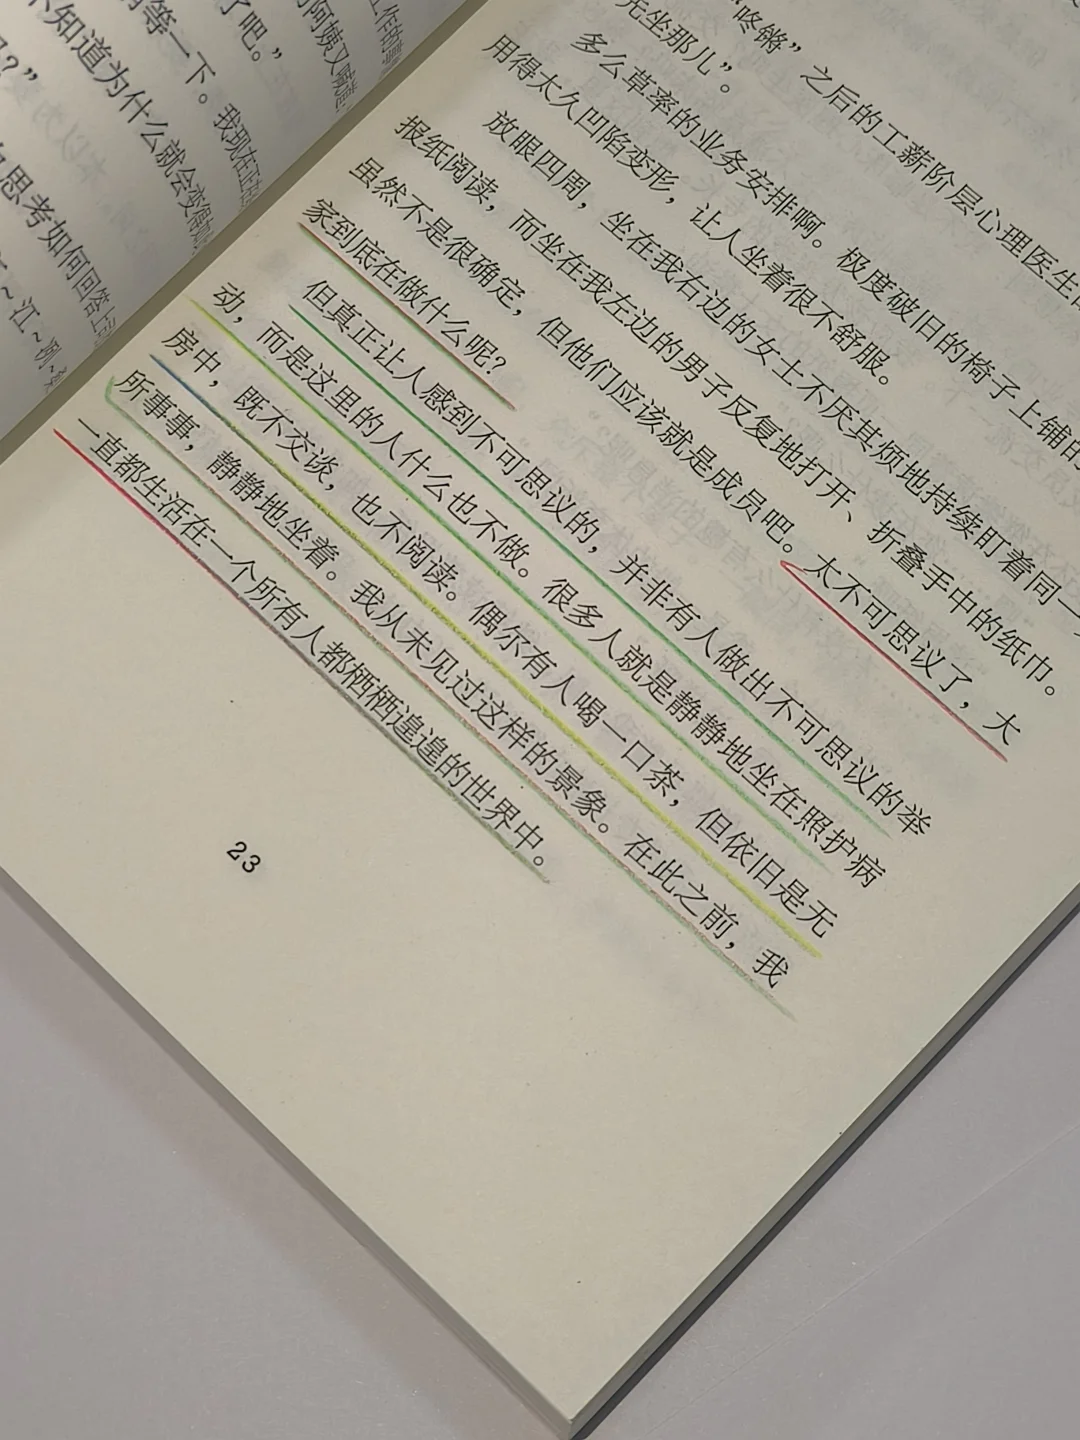 等一下。我现在正
了吧。”
不知道为什么就会变得
思考如何回答上
“咚锵”之后的工薪阶层心理医生
先坐那儿”。
多么草率的业务安排啊。极度破旧的椅子上铺的
用得太久凹陷变形，让人坐着很不舒服。
放眼四周，坐在我右边的女士不厌其烦地持续盯着同一
报纸阅读，而坐在我左边的男子反复地打开、折叠手中的纸巾。
虽然不是很确定，但他们应该就是成员吧。太不可思议了，大
家到底在做什么呢？
但真正让人感到不可思议的，并非有人做出不可思议的举
动，而是这里的人什么也不做。很多人就是静静地坐在照护病
房中，既不交谈，也不阅读。偶尔有人喝一口茶，但依旧是无
所事事，静静地坐着。我从未见过这样的景象。在此之前，我
一直都生活在一个所有人都栖栖遑遑的世界中。
23